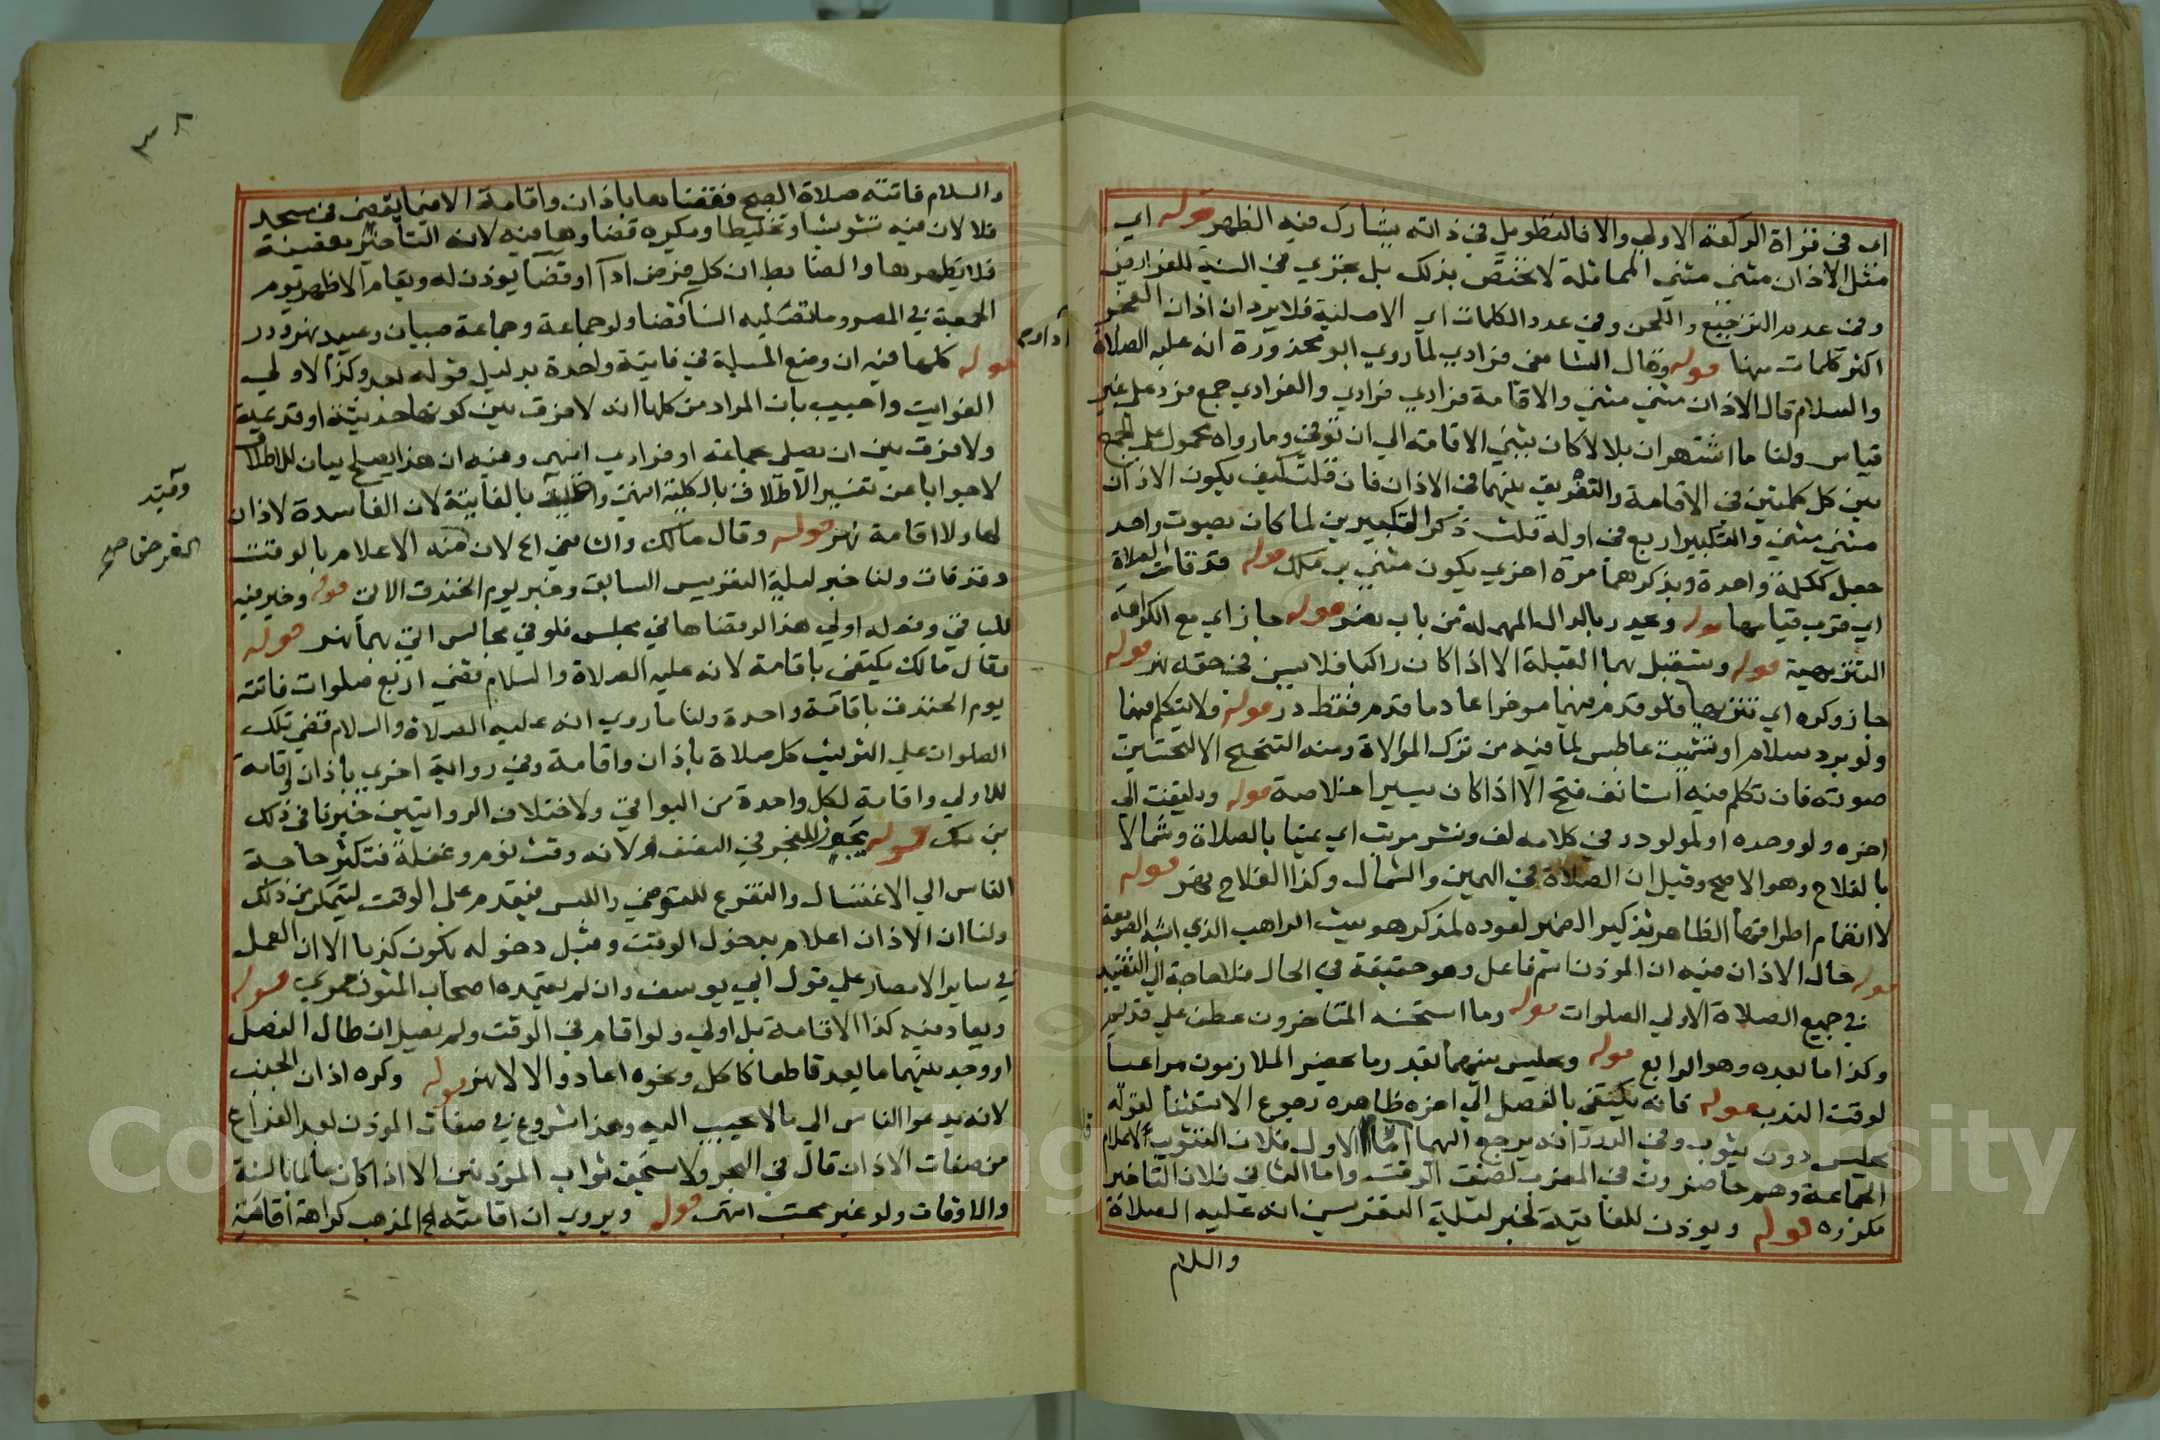 اي في قراة الركعة الاولي والا فالتطويل في ذاته يشارك فيه الظهر قوله اي
مثل الاذان مثني مثني المماثلة لا تختص بذلك بل يجزي في السنية للفرايض
وفي عدم الترجيع واللحن وفي عدد الكلمات اي الاصلية فلا يرد ان اذان الفجر
اكثر كلمات نهنا قوله وقال الشافعي فرادي لما روي ابو محذورة انه عليه الصلاة
والسلام قال الاذان مثني مثني والاقامة فرادي فرادي والفرادي جمع فرد علي غير
قياس ولنا ما اشتهر ان بلالا كان يثني الاقامة الي ان توفي وما رواه محمول علي الجمع
بين كل كلمتين في الاقامة والتفريق بينهما في الاذان فان قلت كيف يكون الاذان
مثني مثني والتكبير اربع في اوله قلت ذكر التكبيرين لما كان بصوت واحد
جعل ككلمة واحدة ويذكرهما مرة اخري يكون مثني بن ملك قوله قد قامت الصلاة
اي قرب قيامها قوله ويحدر بالدال المهملة من باب نصر قوله جاز اي مع الكراهة
التنزيهية قوله ويستقبل بهما القبلة الا اذا كان راكبا فلا يسن في حقه نهر قوله
جاز وكره اي تنزيها فلو قدم فيهما موخرا اعاد ما قدم فقط در قوله ولا يتكلم فيهما
ولو برد سلام او تشميت عاطس لما فيه من ترك الموالاة ومنه التنحنح الا لتحسين
صوته فان تكلم فيه استانف فتح الا اذا كان يسيرا خلاصة قوله ويلتفت الي
اخره ولو وحده او لمولود در في كلامه لف ونشر مرتب اي يمينا بالصلاة وشمالا
بالفلاح وهو الاصح وقيل ان الصلاة في اليمين والشمال وكذا الفلاح نهر قوله
لا انضام اطرافها الظاهر تذكير الضمير لعوده لمذكر هو بيت الراهب الذي اشبه الصومعة
قوله حال الاذان فيه ان الموذن اسم فاعل وهو حقيقة في الحال فلا حاجة الي التقييد
في جميع الصلاة الاولي الصلوات قوله وما استحسنه المتاخرون عطف علي قديم
وكذا ما بعده وهو الرابع قوله ويجلس بينهما بقدر ما يحضر الملازمون مراعيا
لوقت الندب قوله فانه يكتفي بالفصل الي اخره ظاهره رجوع الاستثنا لقوله
يجلس دون يثوب وفي الدرر انه يرجع اليهما اما الاول فلان التثويب لاعلام
الجماعة وهم حاضرون في المغرب لضيق الوقت واما الثاني فلان التاخير
مكروه قوله ويوذن للفايتة لخبر ليلة التعريس انه عليه الصلاة
والسلام
٣٨
والسلام فاتته صلاة الصبح فقضاها باذان واقامة الا فيما يقضي في مسجد
فلا لان فيه تشويشا وتخليطا ويكره قضاوها فيه لانه التأخير معصية
فلا يظهرها والضابط ان كل فرض ادآ او قضآ يوذن له ويقام الا ظهر يوم
الجمعة في المصر وما تقضيه النسا قضا ولو جماعة وجماعة صبيان وعبيد نهر ودر
قوله كلها فيه ان وضع المسئلة في فايتة واحدة بدليل قوله بعد وكذا الاولي
الفوايت واجيب بان المراد من كلها انه لا فرق بين كونها حديثة او قديمة
ولا فرق بين ان يصلي بجماعة او فرادي انتهي وفيه ان هذا يصلح بيان للاطلاق
لا جوابا عن تفسير الاطلاق بالكلية انتهي بالفايتة لان الفاسدة لا اذان
لها ولا اقامة نهر قوله وقال مالك والشافعي الخ لان منه الاعلام بالوقت
وقد فات ولنا خبر ليلة التعريس السابق وخبر يوم الخندق الات قوله وخير فيه
للباقي وفعله اولي هذا لو قضاها في مجلس فلو في مجالس اتي بهما نهر قوله
وقال مالك يكتفي باقامة لانه عليه الصلاة والسلام قضي اربع صلوات فاتته
يوم الخندق باقامة واحدة ولنا ما روي انه عليه الصلاة والسلام قضي تلك
الصلوات علي الترتيب كل صلاة باذان واقامة وفي رواية اخري باذان واقامة
للاولي واقامة لكل واحدة من البواقي ولاختلاف الروايتين خيرنا في ذلك
بن ملك قوله يجوز للفجر في النصف لانه وقت نوم وغفلة فتكثر حاجة
الناس الي الاغتسال والتفرغ للتوضي واللبس فيقدم علي الوقت ليتمكن من ذلك
ولنا ان الاذان اعلام بدخول الوقت وقبل دخوله يكون كذبا الا ان العمل
في ساير الامصار علي قول ابي يوسف وان لم يعتمده اصحاب المتون حموي قوله
ويعاد فيه كذا الاقامة بل اولي ولو اقام في الوقت ولم يصل ان طال الفصل
او وجد بينهما ما يعد قاطعا كاكل ونحوه اعاد والا لا نهر قوله وكره اذان الجنب
لانه يدعو الناس الي ما لا يجيب اليه وهذا شروع في صفات الموذن بعد الفراغ
من صفات الاذان قال في البحر ولا يستحق ثواب الموذنين الا اذا كان عالما بالسنة
والاوقات ولو غير محتسب انتهي قوله ويروي ان اقامته الخ المذهب كراهة اقامته
وقيد
الفرض صح